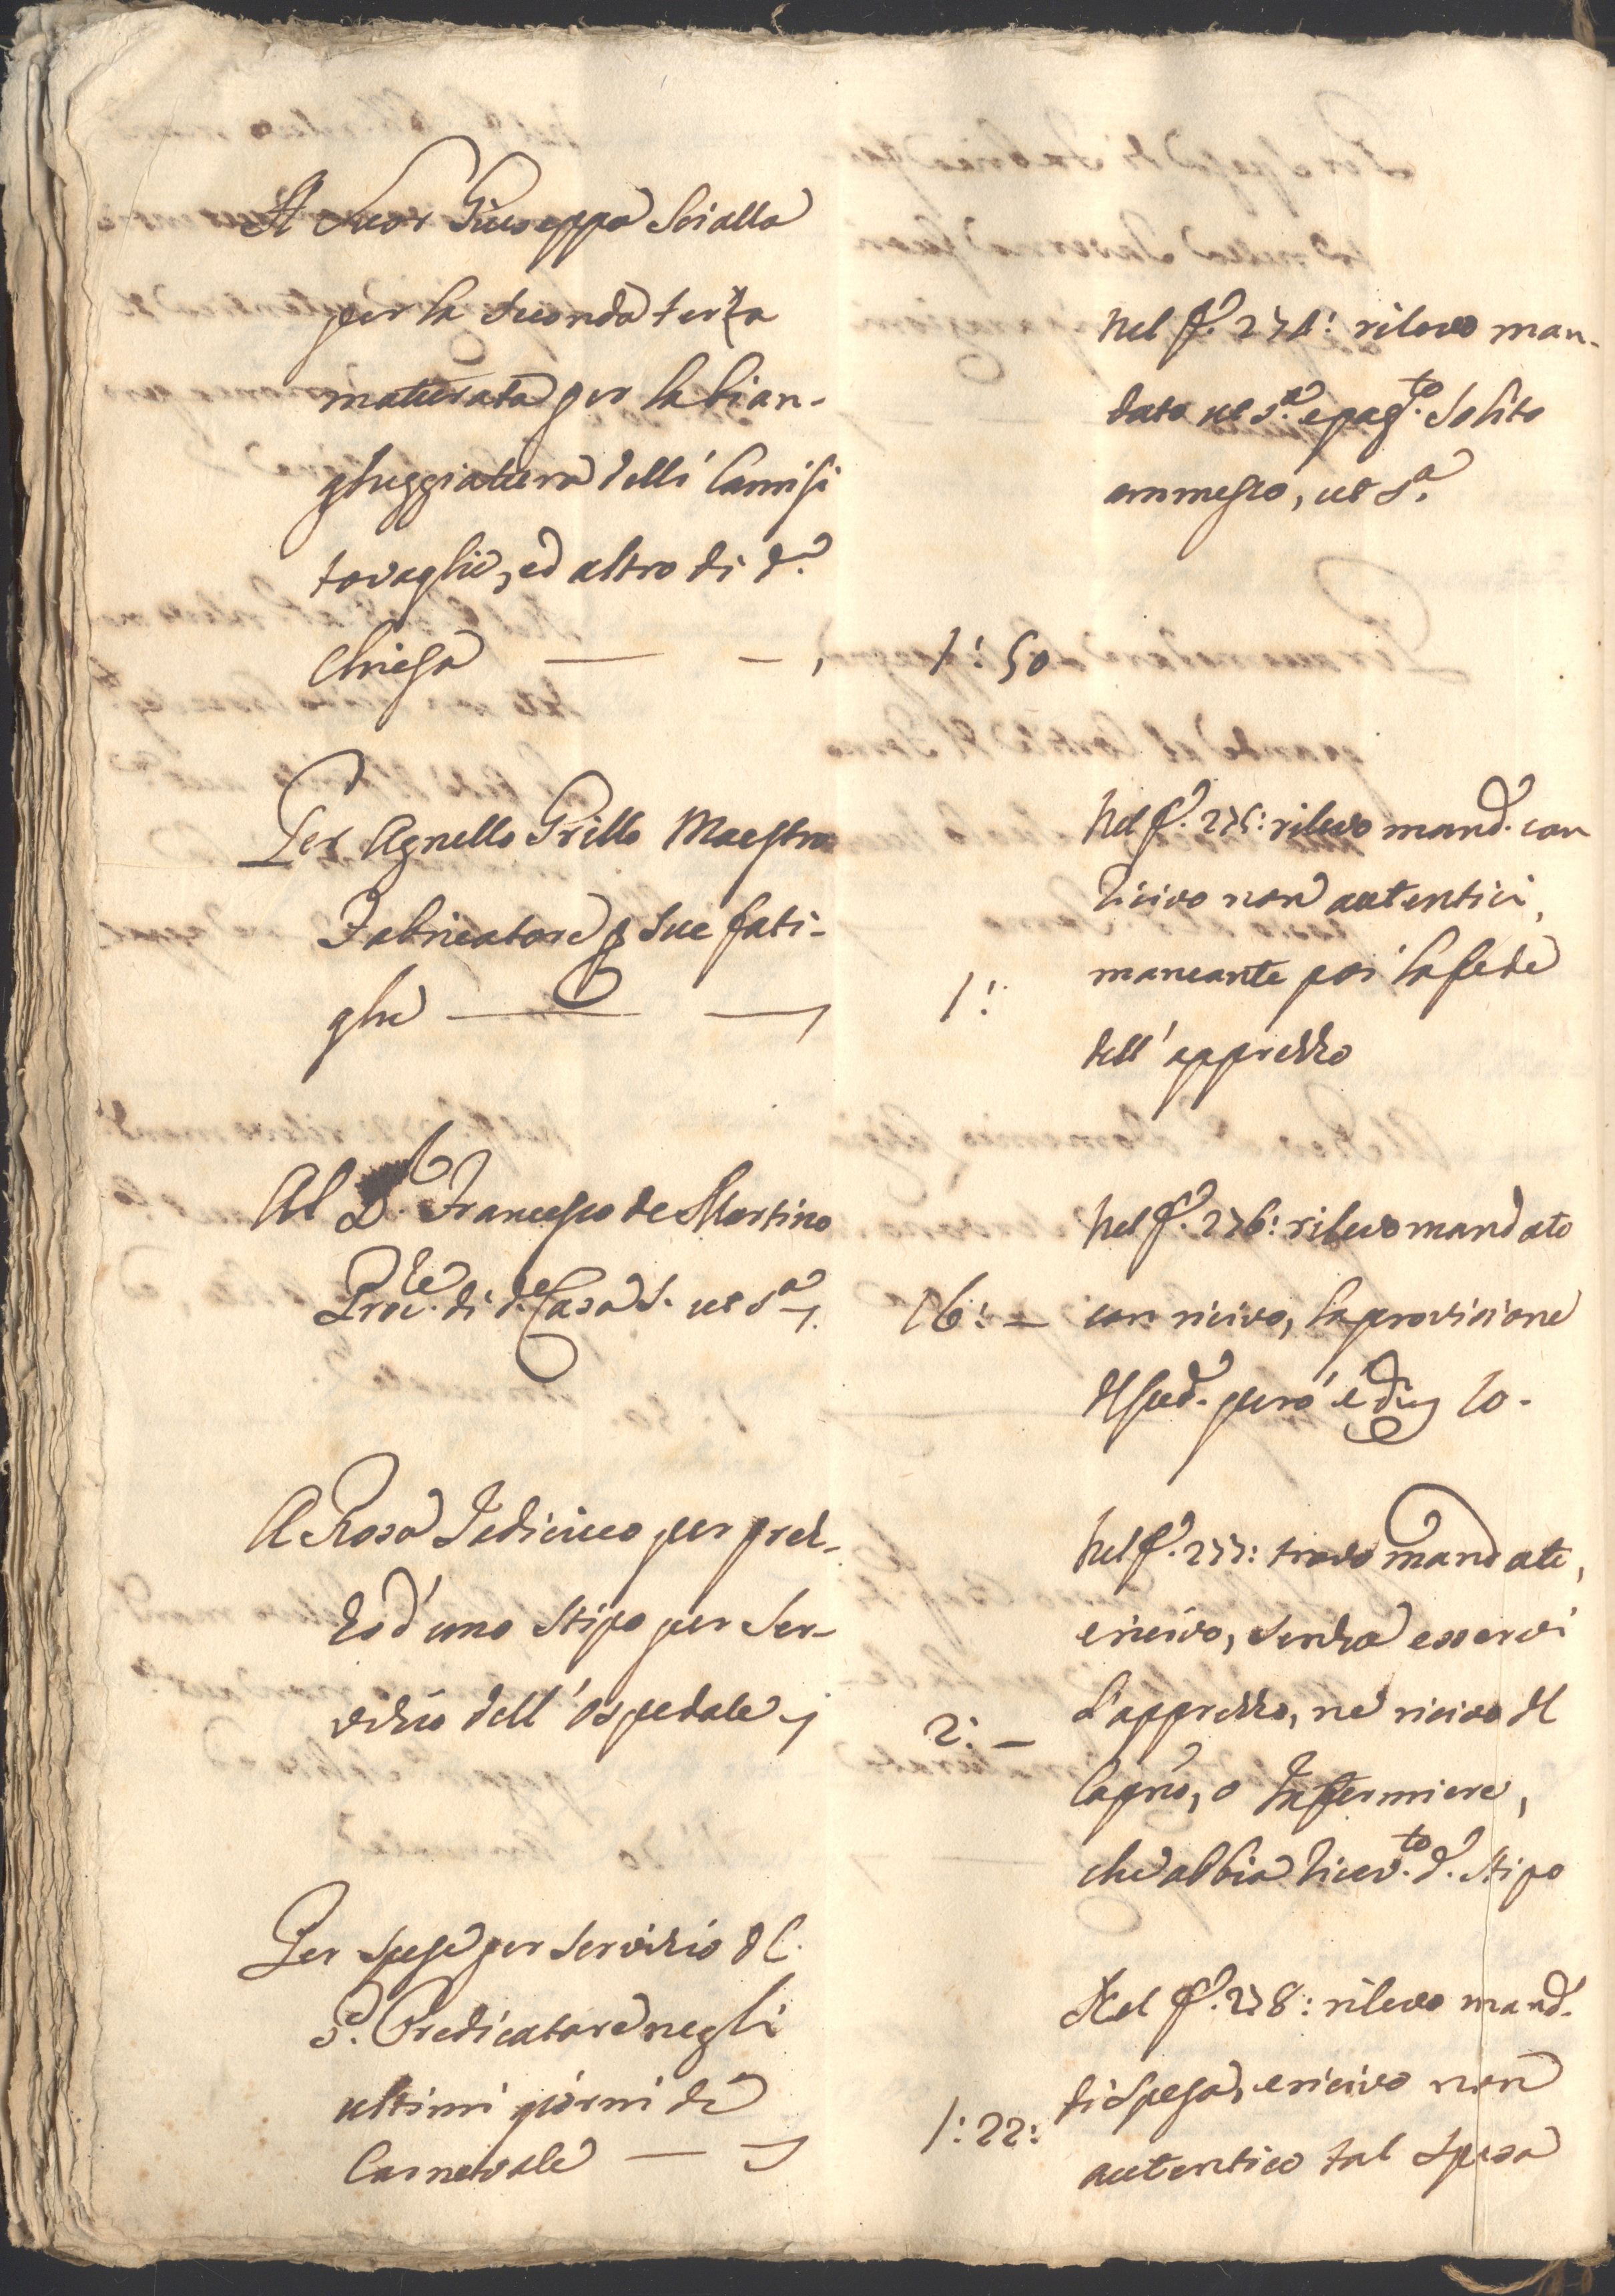 A Suor Giuseppa Scialla
per la seconda terza
maturata per la bian-
gheggiatura delli Camisi
tovaglie, ed altro di d.ª
Chiesa — — , 1: 50
Nel f.º 274: rilevo man-
dato ut s.ª e pag.to solito
ammesso, ut s.ª
Per Agnello Grillo Maestro
Fabricatore p sue fati-
ghe — — 1:
Nel f.º 275: rilevo mand.º con
ricivo non autentici,
mancante poi la fede
dell'apprezzo
Al D. Francesco de Martino
Proc.re di d.ª Casa S. ut s.ª 16: =
Nel f.º 276: rilevo mandato
con ricivo, la provisione
del sud.º però è di 10.
A Rosa Fedicicco per prez-
zo d'uno stipo per ser-
vizio dell'ospedale 2: —
Nel f.º 277: trovo mandato,
e ricivo, senza esservi
l'apprezzo, ne ricivo del
Capno, o Infermiere,
che abbia ricev.to d.º stipo
Per spese per servizio del
P.e Predicatore negli
ultimi giorni di
Carnevale — 1: 22:
Nel f.º 278: rilevo mand.º
di spesa, e ricivo non
autentico tal spesa